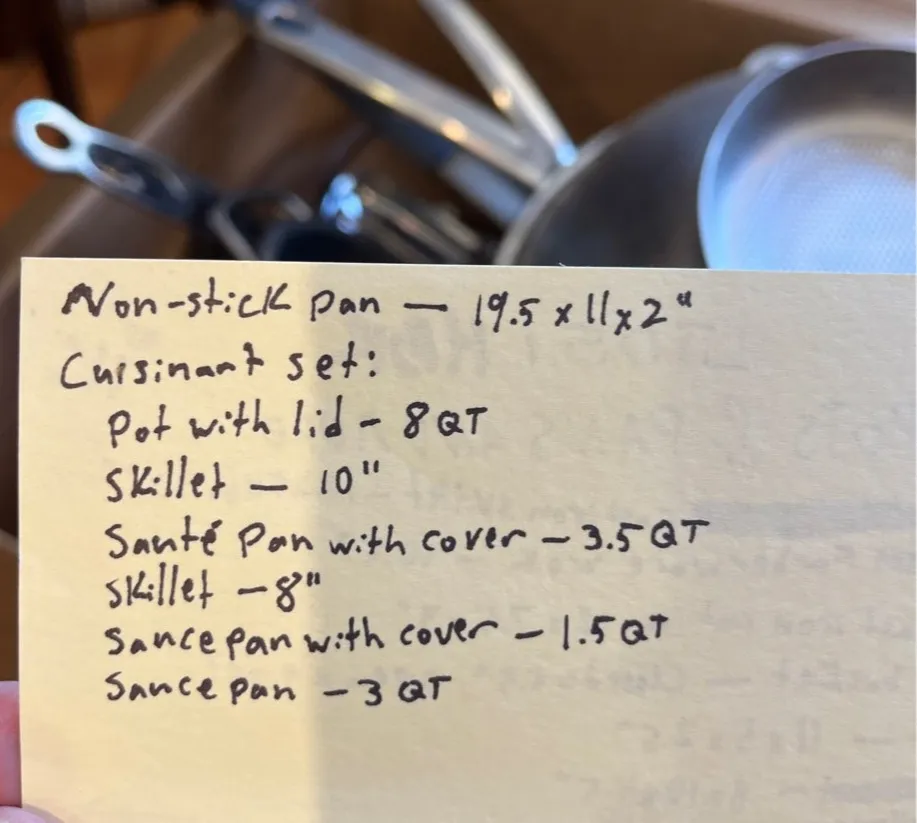 Non-stick pan — 19.5 x 11 x 2"
Cuisinant set:
Pot with lid - 8 QT
Skillet — 10"
Santé Pan with cover - 3.5 QT
Skillet - 8"
Sance pan with cover - 1.5 QT
Sance pan - 3 QT